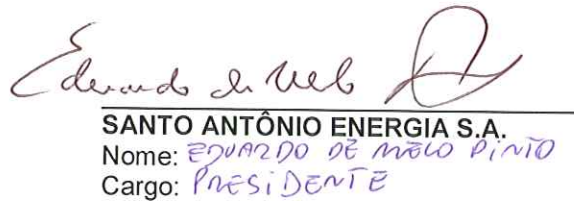 Eduardo de Melo
SANTO ANTÔNIO ENERGIA S.A.
Nome: EDUARDO DE MELO PINTO
Cargo: PRESIDENTE